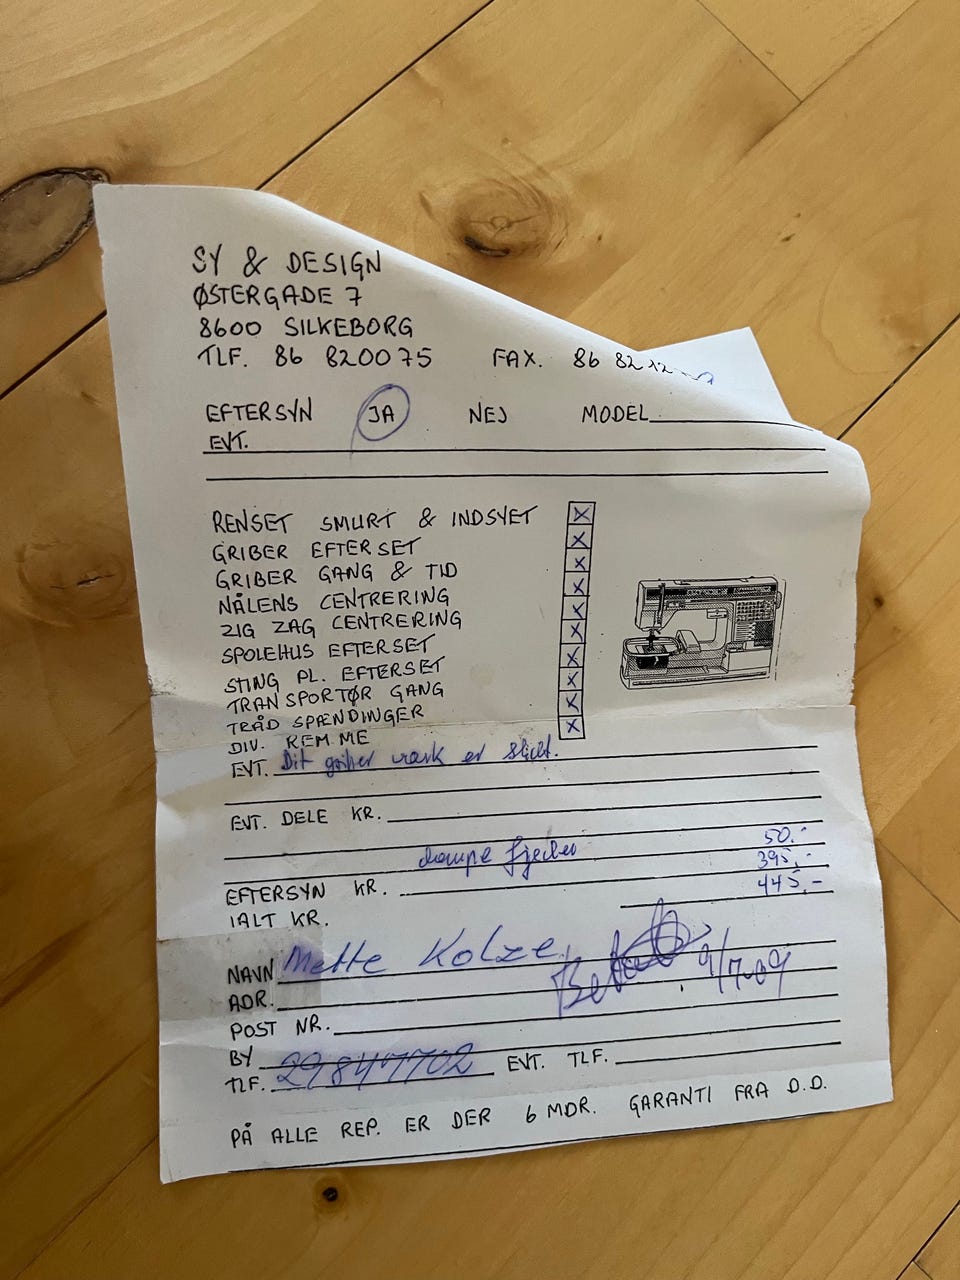 SY & DESIGN
ØSTERGADE 7
8600 SILKEBORG
TLF. 86 820075 FAX. 86 82 12
EFTERSYN JA NEJ MODEL
EVT.
RENSET SMURT & INDSVET
GRIBER EFTERSET
GRIBER GANG & TID
NÅLENS CENTRERING
ZIG ZAG CENTRERING
SPOLEHUS EFTERSET
STING PL. EFTERSET
TRANSPORTØR GANG
TRÅD SPÆNDINGER
DIV. REMME
EVT. Dit griber værk er slidt.
EVT. DELE KR.
50.-
395,-
EFTERSYN KR. 445,-
IALT KR.
NAVN Mette Kolze
9/7-09
ADR.
POST NR.
BY
TLF. 29847702 EVT. TLF.
PÅ ALLE REP. ER DER 6 MDR. GARANTI FRA D.D.